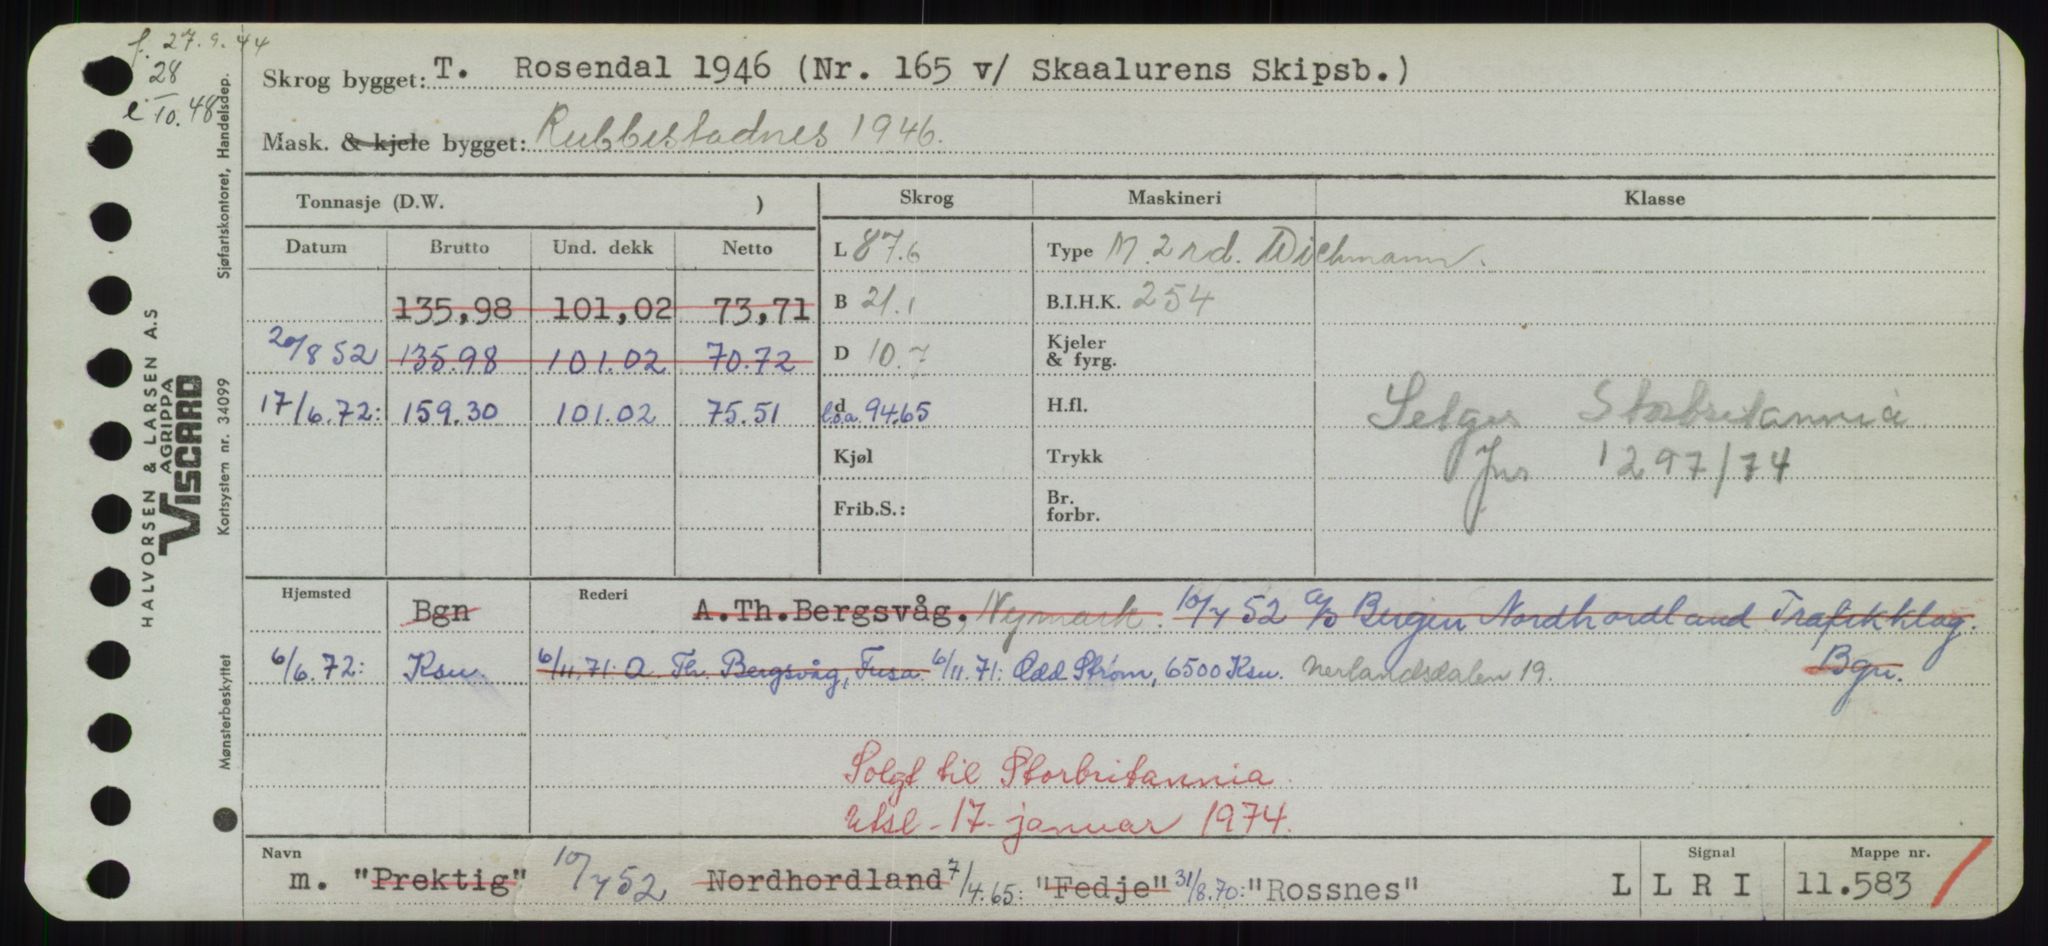 f. 27.9.44
28
e 10.48
Skrog bygget: T. Rosendal 1946 (Nr. 165 v/ Skaalurens Skipsb.)
Mask. & kjele bygget: Rubbestadnes 1946.
Tonnasje (D.W. ) Skrog Maskineri Klasse
Datum Brutto Und. dekk Netto L 87.6 Type M. 2 rd. Wichmann.
135,98 101,02 73,71 B 21.1 B.I.H.K. 254
20/8 52 135.98 101.02 70.72 D 10.7 Kjeler & fyrg.
17/6.72: 159.30 101.02 75.51 d l.o.a. 94.65 H.fl.
Selges Storbritannia
Kjøl Trykk
Jnr 1297/74
Frib.S.: Br. forbr.
Hjemsted Bgn Rederi A.Th.Bergsvåg, Nymark. 10/7 52 A/S Bergen Nordhordland Trafikklag. Bgn.
6/6.72: Ksu. 6/11.71: A. Th. Bergsvåg, Fusa 6/11.71: Odd Strøm, 6500 Ksu. Nerlandsdalen 19.
Solgt til Storbritannia.
Utsl. 17. januar 1974.
Navn Signal Mappe nr.
m. "Prektig" 10/7 52 Nordhordland 7/4.65: "Fedje" 31/8.70: "Rossnes" L L R I 11.583
HALVORSEN & LARSEN A.S
AGRIPPA
VISCARD
Mønsterbeskyttet Kortsystem nr. 34099 Sjøfartskontoret, Handelsdep.